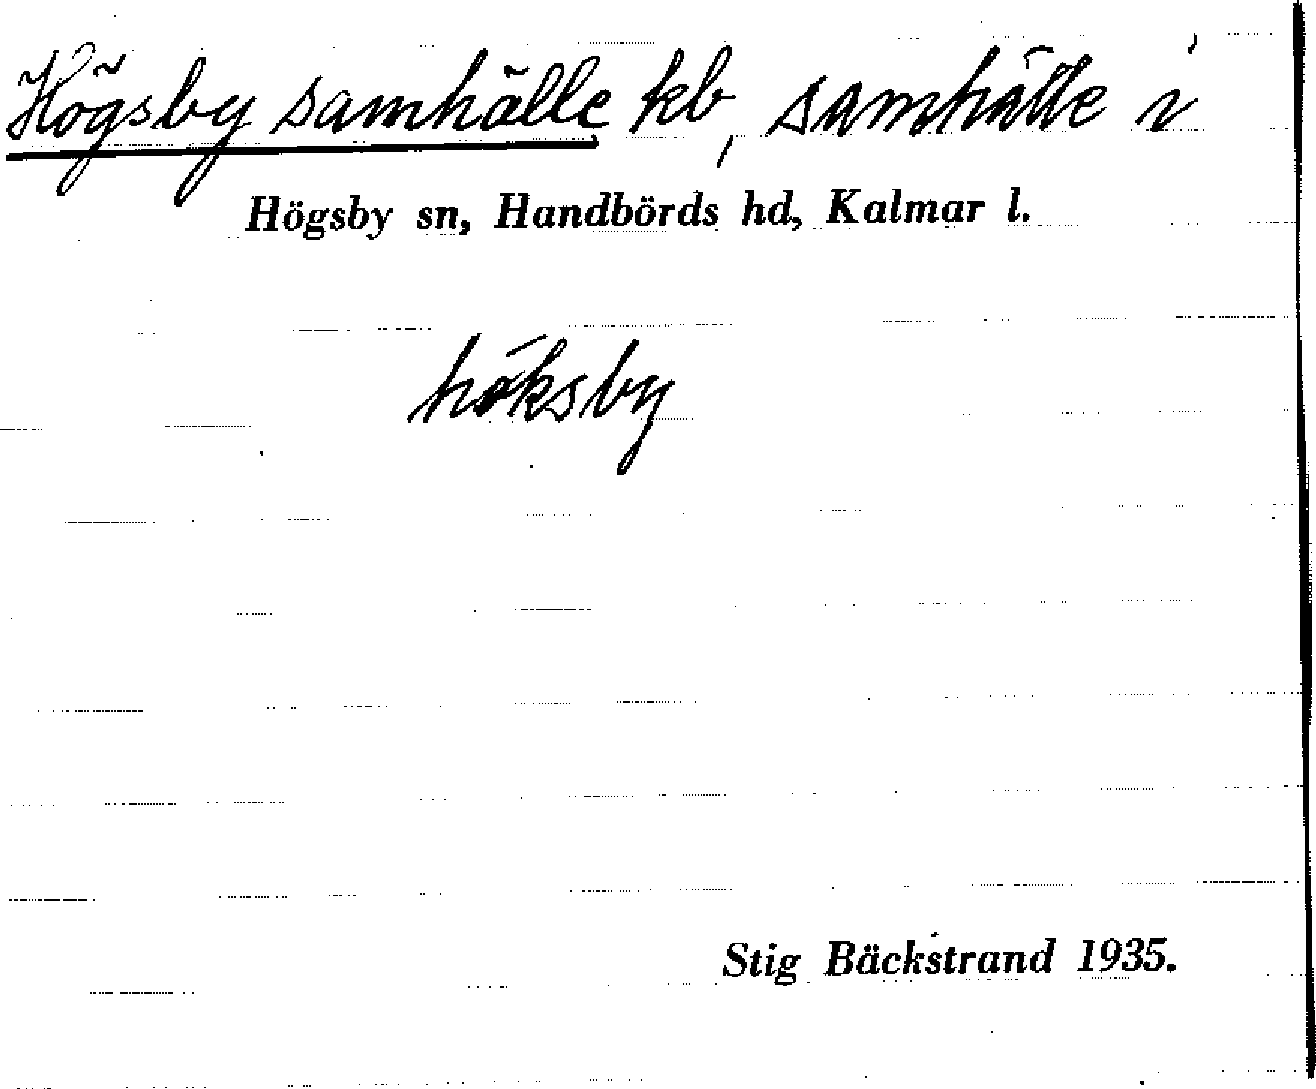 Högsby samhälle kb, samhälle i
Högsby sn, Handbörds hd, Kalmar l.
höksby
Stig Bäckstrand 1935.